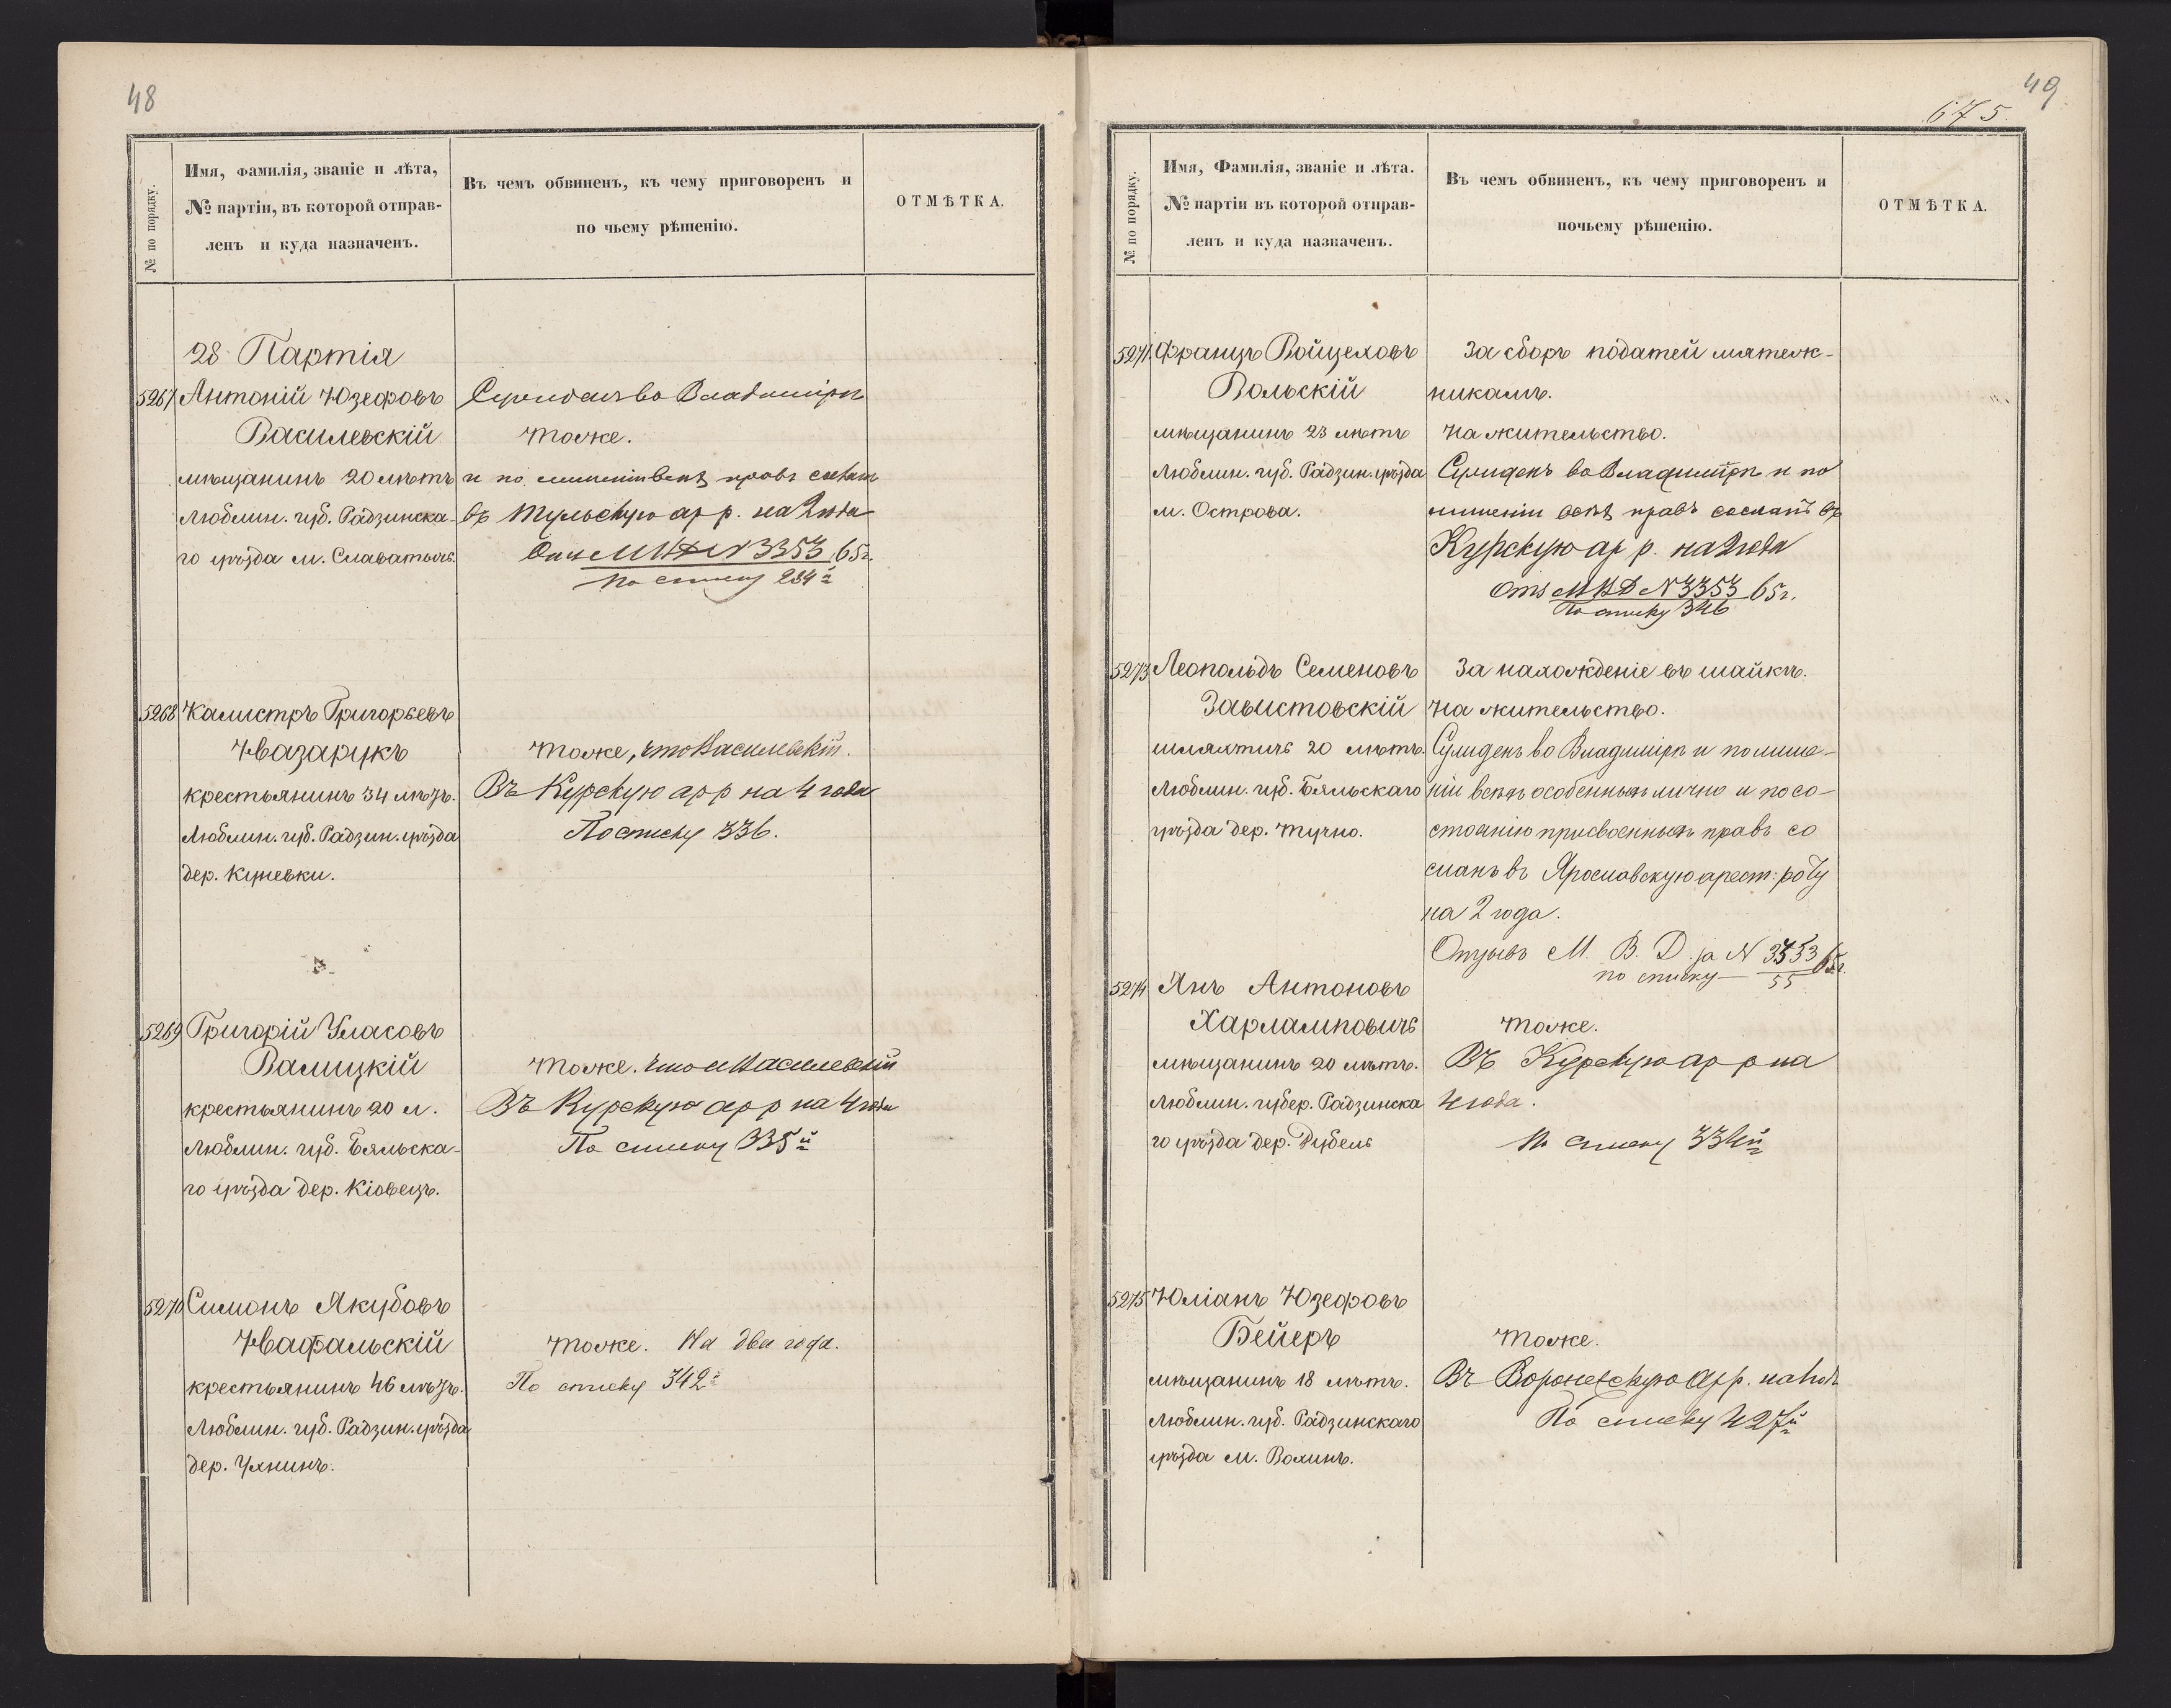 48
№ по порядку.
Имя, фамилія, званіе и лѣта,
№ партіи, въ которой отправ-
ленъ и куда назначенъ.
Въ чемъ обвиненъ, къ чему приговоренъ и
по чьему рѣшенію.
ОТМѢТКА.
28 Партія
5267 Антоній Юзефовъ
Василевскій
мѣщанинъ 20 лѣтъ
Люблин. губ. Радзинска-
го уѣзда м. Славатычъ.
Сужденъ во Владимірѣ
тоже.
и по лишеніи всѣхъ правъ сосланъ
въ Тульскую ар р. на 2 года
МВД N 3353 65г.
По списку 234й
5268 Калистръ Григорьевъ
Назарукъ
крестьянинъ 34 лѣтъ.
Люблин. губ. Радзин. уѣзда
дер.
тоже, что Василевскій.
Въ Курскую ар р на 4 года
По списку 336.
5269 Григорій Уласовъ
Валицкій
крестьянинъ 20 л.
Люблин. губ. Бяльска-
го уѣзда дер. Кіовецъ.
тоже. что и Василевскій
Въ Курскую ар р на 4 года
По списку 335й
5270 Симонъ Якубовъ
Нафальскій
крестьянинъ 46 лѣтъ.
Люблин. губ. Радзин. уѣзда
дер. Ухнинъ.
тоже. На два года.
По списку 342й
49
675.
№ по порядку.
Имя, Фамилія, званіе и лѣта.
№ партіи въ которой отправ-
ленъ и куда назначенъ.
Въ чемъ обвиненъ, къ чему приговоренъ и
почьему рѣшенію.
ОТМѢТКА.
5271 Францъ Войцеховъ
Вольскій
мѣщанинъ 23 лѣтъ
Люблин. губ. Радзин. уѣзда
м. Острова.
За сборъ податей мятеж-
никамъ.
На жительство.
Сужденъ во Владимірѣ и по
лишеніи всѣхъ правъ сосланъ въ
Курскую ар р. на 2 года
Отз МВД N 3353 65г.
По списку 346
5273 Леопольдъ Семеновъ
Завистовскій
шляхтичъ 20 лѣтъ.
Люблин. губ. Бяльскаго
уѣзда дер. Тучно.
За нахожденіе въ шайкѣ.
На жительство.
Сужденъ во Владимірѣ и по лише-
ніи всѣхъ особенныхъ лично и по со-
стоянію присвоенныхъ правъ со
сланъ въ Ярославскую арест: роту
на 2 года.
Отзывъ М. В. Д. за N 3353 65г.
по списку 55
5274 Янъ Антоновъ
Харламповичъ
мѣщанинъ 20 лѣтъ.
Люблин. губер. Радзинска
го уѣзда дер. Рубель
тоже.
Въ Курскую ар р на
4 года.
По списку 334й
5275 Юліанъ Юзефовъ
Бейеръ
мѣщанинъ 18 лѣтъ.
Люблин. губ. Радзинскаго
уѣзда м. Вохинъ.
тоже.
Въ Воронежскую ар р. на
По списку 427й